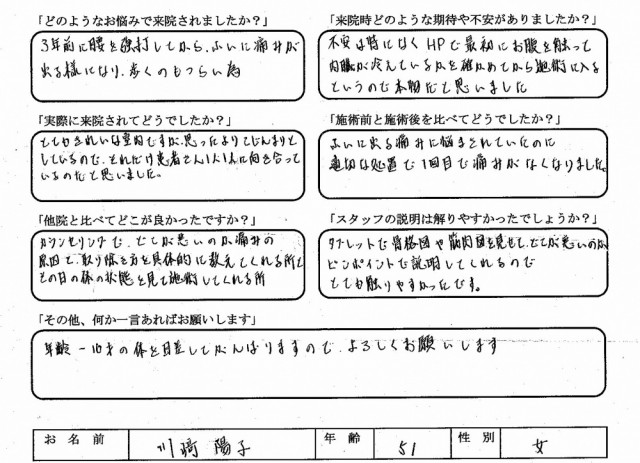 「どのようなお悩みで来院されましたか？」
3年前に腰を強打してから、ふいに痛みが
出る様になり、歩くのもつらい為
「来院時どのような期待や不安がありましたか？」
不安は特になくHPで最初にお腹を触って
内臓が冷えているかを確かめてから施術に入る
というので本物だと思いました
「実際に来院されてどうでしたか？」
とてもきれいな室内ですが、思ったよりこじんまりと
しているので、それだけ患者さん1人1人に向き合って
いるのだと思いました。
「施術前と施術後を比べてどうでしたか？」
ふいに出る痛みに悩まされていたのに
適切な処置で1回目で痛みがなくなりました。
「他院と比べてどこが良かったですか？」
カウンセリングで、どこが悪いのか痛みの
原因で、取り除き方を具体的に教えてくれる所と
その日の体の状態を見て施術してくれる所
「スタッフの説明は解りやすかったでしょうか？」
タブレットで骨格図や筋肉図を見せて、どこが悪いのか
ピンポイントで説明してくれるので
とても解りやすかったです。
「その他、何か一言あればお願いします」
年齢－10才の体を目差してがんばりますので、よろしくお願いします
お名前 川﨑 陽子 年齢 51 性別 女